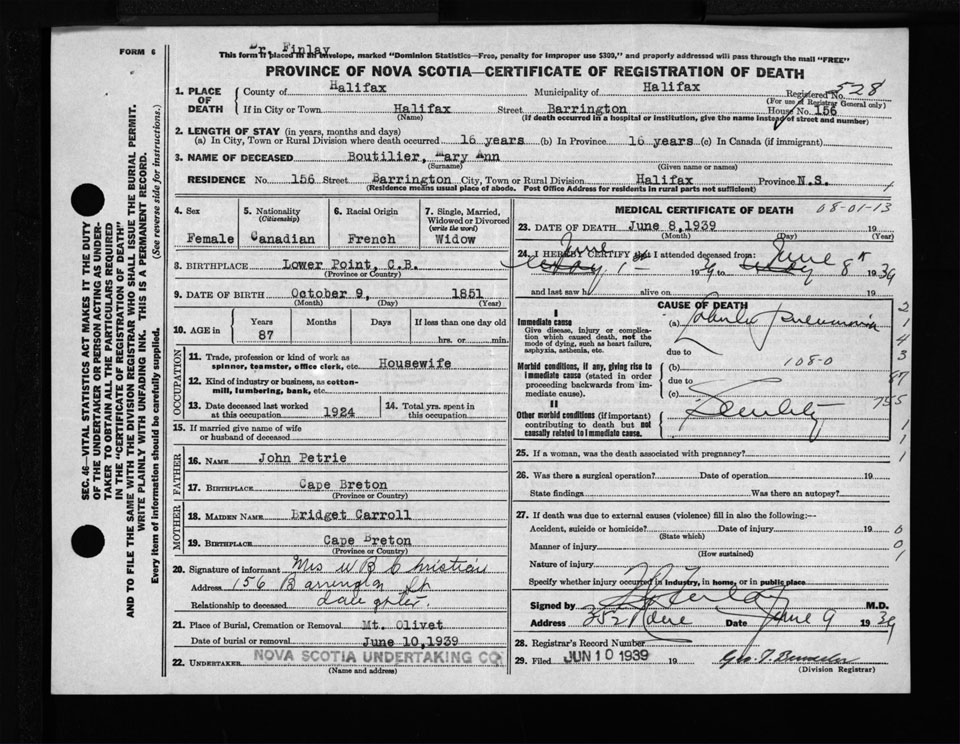 FORM 6
Dr. Finlay
This form if placed in an envelope, marked "Dominion Statistics—Free, penalty for improper use $300," and properly addressed will pass through the mail "FREE"
PROVINCE OF NOVA SCOTIA—CERTIFICATE OF REGISTRATION OF DEATH
SEC. 46—VITAL STATISTICS ACT MAKES IT THE DUTY
OF THE UNDERTAKER OR PERSON ACTING AS UNDER-
TAKER TO OBTAIN ALL THE PARTICULARS REQUIRED
IN THE "CERTIFICATE OF REGISTRATION OF DEATH"
AND TO FILE THE SAME WITH THE DIVISION REGISTRAR WHO SHALL ISSUE THE BURIAL PERMIT.
WRITE PLAINLY WITH UNFADING INK. THIS IS A PERMANENT RECORD.
Every item of information should be carefully supplied. (See reverse side for instructions.)
1. PLACE OF DEATH
County of Halifax Municipality of Halifax Registered No. 528
(For use of Registrar General only)
If in City or Town Halifax Street Barrington House No. 156
(Name) (If death occurred in a hospital or institution, give the name instead of street and number)
2. LENGTH OF STAY (in years, months and days)
(a) In City, Town or Rural Division where death occurred 16 years (b) In Province 16 years (c) In Canada (if immigrant)
3. NAME OF DECEASED Boutilier, Mary Ann
(Surname) (Given name or names)
RESIDENCE No. 156 Street Barrington City, Town or Rural Division Halifax Province N.S.
(Residence means usual place of abode. Post Office Address for residents in rural parts not sufficient)
4. Sex
Female
5. Nationality
(Citizenship)
Canadian
6. Racial Origin
French
7. Single, Married, Widowed or Divorced
(write the word)
Widow
8. BIRTHPLACE Lower Point, C.B.
(Province or Country)
9. DATE OF BIRTH October 9, 1851
(Month) (Day) (Year)
10. AGE in Years Months Days If less than one day old
87 hrs. or min.
OCCUPATION
11. Trade, profession or kind of work as
spinner, teamster, office clerk, etc. Housewife
12. Kind of industry or business, as cotton-
mill, lumbering, bank, etc.
13. Date deceased last worked
at this occupation 1924
14. Total yrs. spent in
this occupation
15. If married give name of wife
or husband of deceased
FATHER
16. NAME John Petrie
17. BIRTHPLACE Cape Breton
(Province or Country)
MOTHER
18. MAIDEN NAME Bridget Carroll
19. BIRTHPLACE Cape Breton
(Province or Country)
20. Signature of informant Mrs W B Christian
Address 156 Barrington St
Relationship to deceased daughter.
21. Place of Burial, Cremation or Removal Mt. Olivet
Date of burial or removal June 10, 1939
22. UNDERTAKER NOVA SCOTIA UNDERTAKING CO.
(Name and address)
MEDICAL CERTIFICATE OF DEATH 08-01-13
23. DATE OF DEATH June 8, 1939 19
(Month) (Day) (Year)
24. I HEREBY CERTIFY that I attended deceased from:
June 1 1939 to June 8 1939
and last saw h alive on 19
CAUSE OF DEATH
I
Immediate cause
Give disease, injury or complica-
tion which caused death, not the
mode of dying, such as heart failure,
asphyxia, asthenia, etc.
(a) Lobular Pneumonia
due to
Morbid conditions, if any, giving rise to
immediate cause (stated in order
proceeding backwards from im-
mediate cause).
(b) 108-0
due to
(c)
II
Other morbid conditions (if important)
contributing to death but not
causally related to immediate cause.
Senility
2
1
4
3
87
755
1
1
1
25. If a woman, was the death associated with pregnancy?
26. Was there a surgical operation? Date of operation 19
State findings Was there an autopsy?
27. If death was due to external causes (violence) fill in also the following:—
Accident, suicide or homicide? Date of injury 19
(State which)
Manner of injury
(How sustained)
Nature of injury
Specify whether injury occurred in industry, in home, or in public place
0
0
1
Signed by M.D.
Address Date June 9 1939
28. Registrar's Record Number
29. Filed JUN 10 1939 19
(Division Registrar)